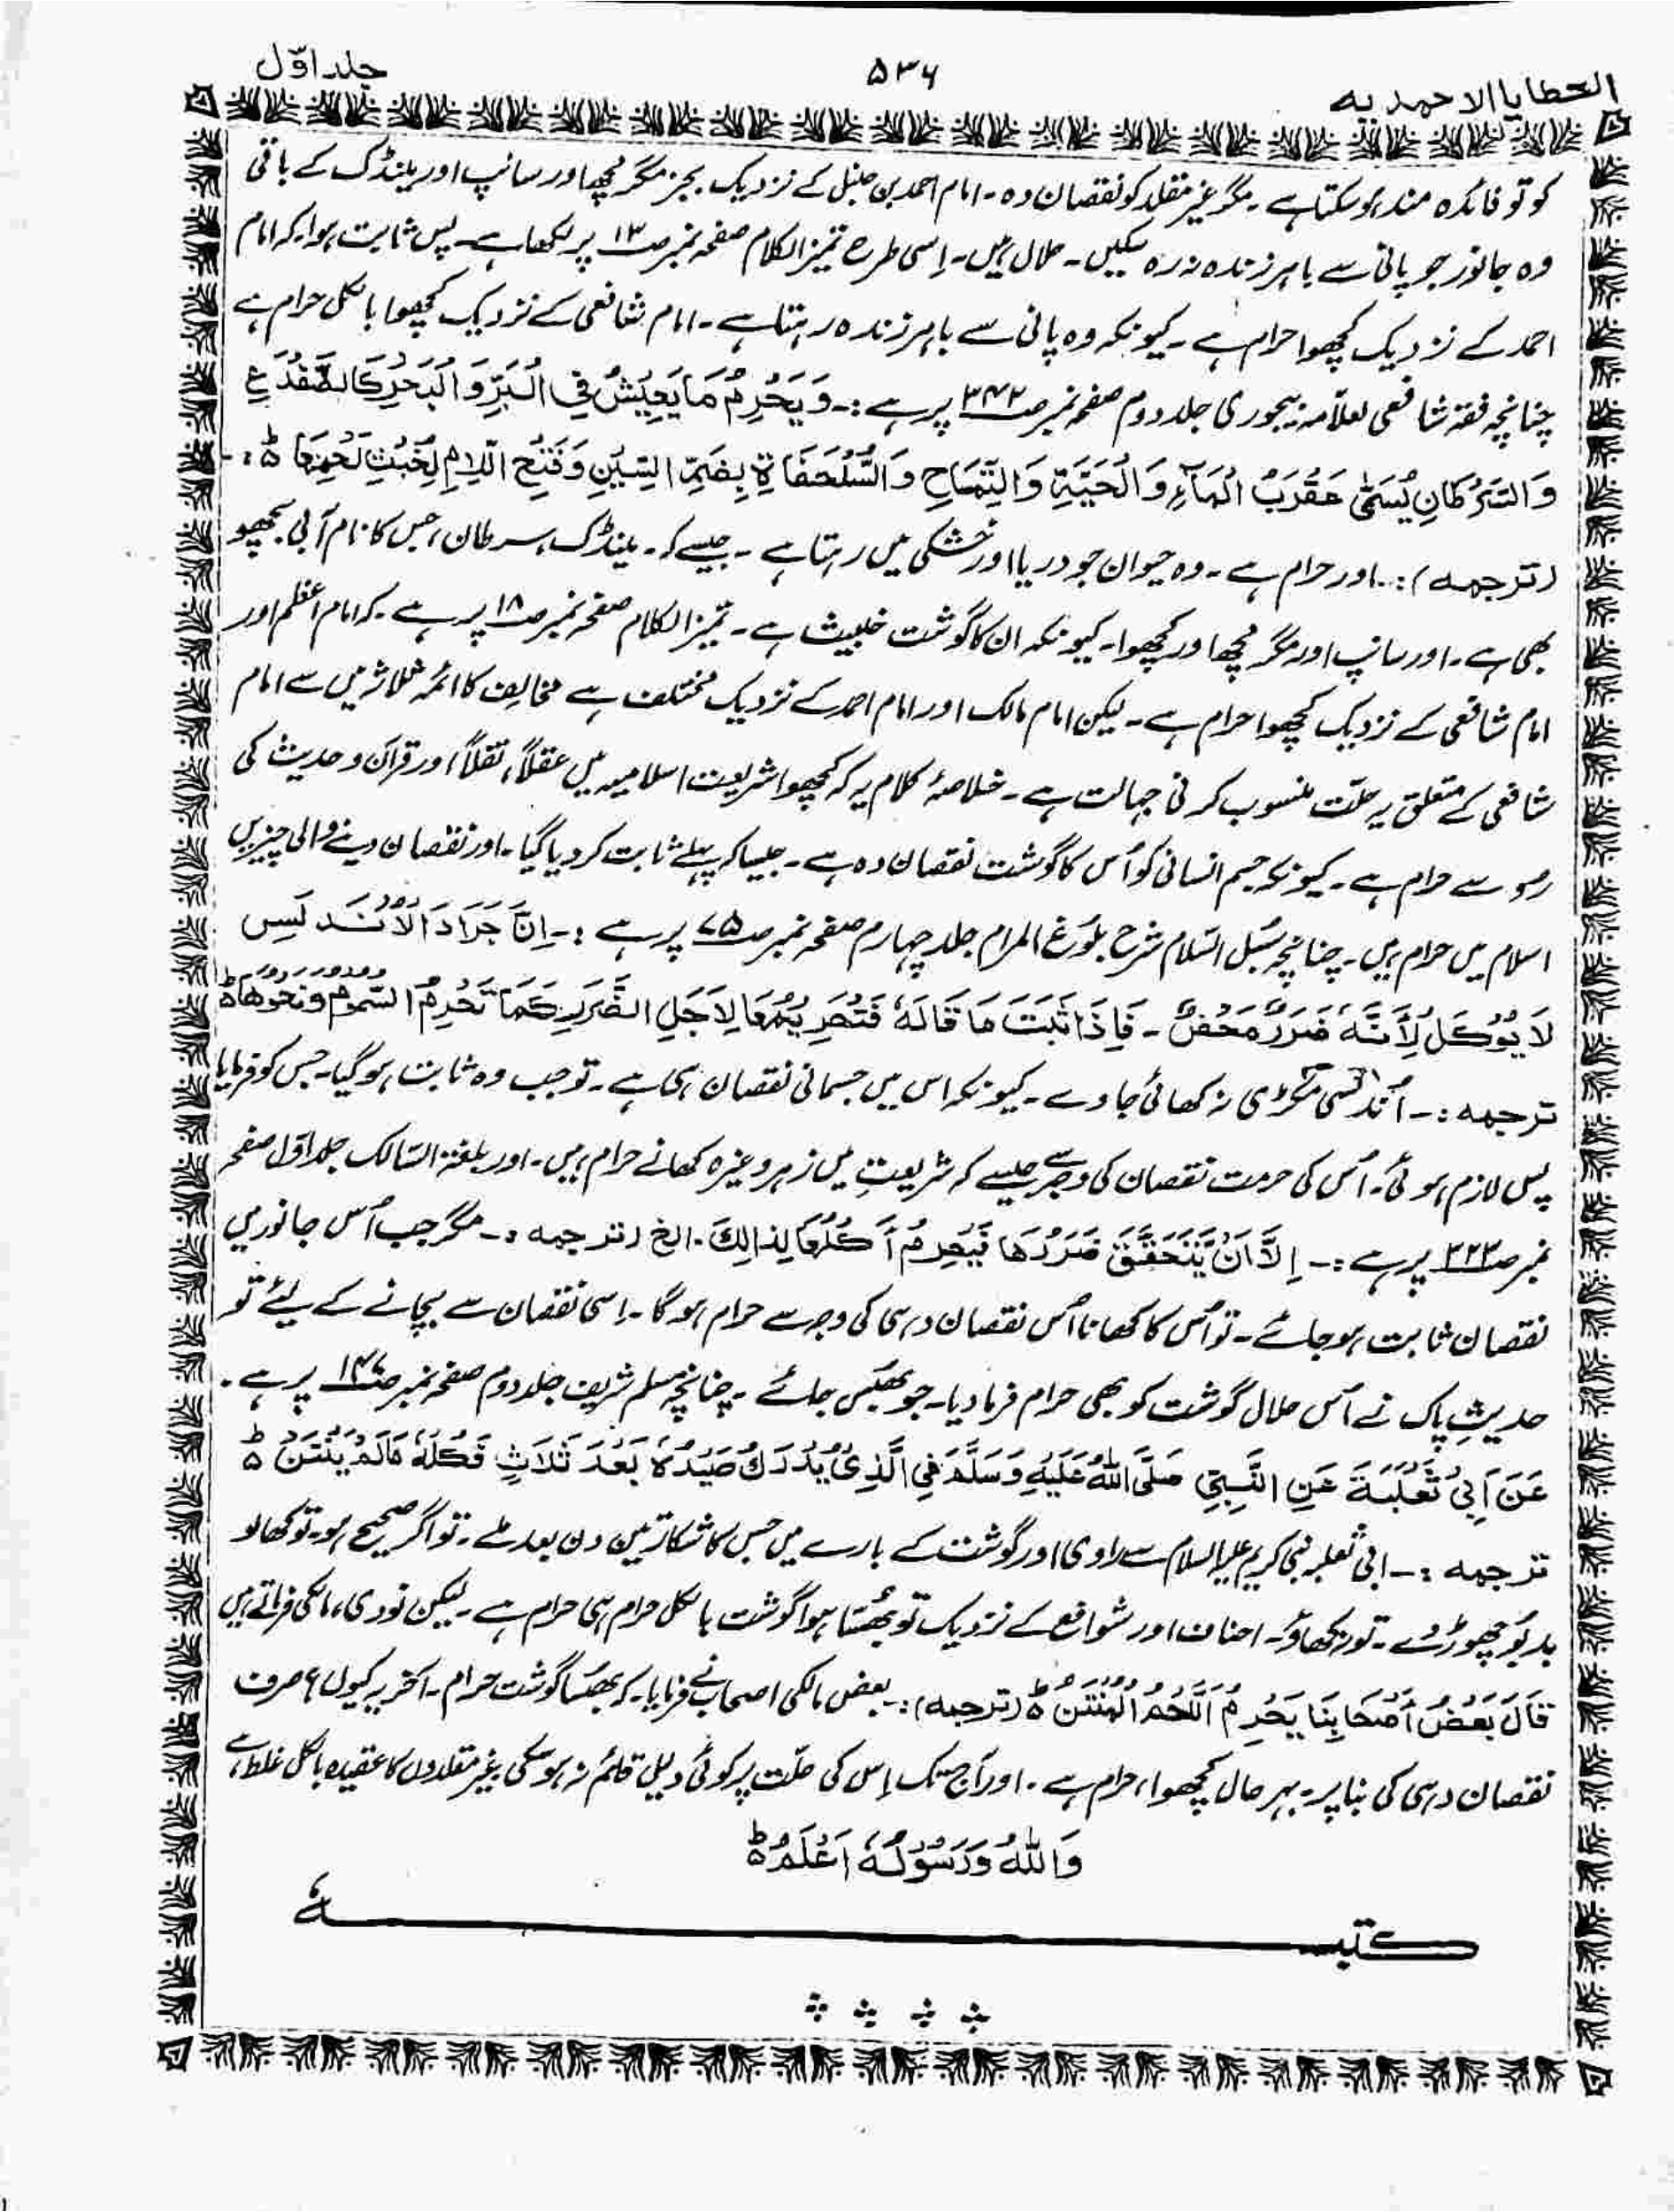 العطایا الاحمدیہ
۵۳۶
جلد اوّل
کو تو فائدہ مند ہو سکتا ہے۔ مگر غیر مقلد کو نقصان دہ۔ امام احمد بن حنبل کے نزدیک بجز مگر مچھ اور سانپ اور مینڈک کے باقی
وہ جانور جو پانی سے باہر زندہ نہ رہ سکیں۔ حلال ہیں۔ اِسی طرح تمیز الکلام صفحہ نمبر صـ۱۳ پر لکھا ہے۔ پس ثابت ہوا۔ کہ امام
احمد کے نزدیک کچھوا حرام ہے۔ کیونکہ وہ پانی سے باہر زندہ رہتا ہے۔ امام شافعی کے نزدیک کچھوا بالکل حرام ہے
چنانچہ فقہ شافعی لعلّامہ بیجوری جلد دوم صفحہ نمبر صـ۳۴۲ پر ہے :۔ وَيَحْرِمُ مَا يَعِيْشُ فِي الْبَرِّ وَالْبَحْرِ كَالضَّفْدَعِ
وَالسَّرْطَانِ يُسَمّٰى عَقْرَبُ الْمَآءِ وَالْحَيَّةِ وَالتِّمْسَاحِ وَالسُّلْحَفَاةِ بِضَمِّ السِّيْنِ وَفَتْحِ اللَّامِ لِخُبْثِ لَحْمِهَا ط :۔
(ترجمہ) :۔ اور حرام ہے۔ وہ حیوان جو دریا اور خشکی میں رہتا ہے۔ جیسے کہ۔ مینڈک، سرطان، جس کا نام آبی بچھو
بھی ہے۔ اور سانپ اور مگر مچھ اور کچھوا۔ کیونکہ ان کا گوشت خبیث ہے۔ تمیز الکلام صفحہ نمبر صـ۱۸ پر ہے۔ کہ امام اعظم اور
امام شافعی کے نزدیک کچھوا حرام ہے۔ لیکن امام مالک اور امام احمد کے نزدیک مختلف ہے مخالف کا ائمہ ثلاثہ میں سے امام
شافعی کے متعلق یہ حلّت منسوب کرنی جہالت ہے۔ خلاصۂ کلام یہ کہ کچھوا شریعت اسلامیہ میں عقلاً، نقلاً اور قرآن و حدیث کی
رو سے حرام ہے۔ کیونکہ جسم انسانی کو اُس کا گوشت نقصان دہ ہے۔ جیسا کہ پہلے ثابت کر دیا گیا۔ اور نقصان دینے والی چیزیں
اسلام میں حرام ہیں۔ چنانچہ سُبل السّلام شرح بلوغ المرام جلد چہارم صفحہ نمبر صـ۷۵ پر ہے :۔ اِنَّ جَرَادَ الْاُنْدَلَسِ
لَا يُؤْكَلُ لِأَنَّهٗ ضَرَرٌ مَحْضٌ۔ فَاِذَا ثَبَتَ مَا قَالَهٗ فَتَحْرِيْمُهَا لِاَجَلِ الضَّرَرِ كَمَا تَحْرِمُ السُّمُوْمُ وَنَحْوُهَا ط
ترجمہ :۔ اُندلسی مکڑی نہ کھائی جاوے۔ کیونکہ اس میں جسمانی نقصان ہی ہے۔ تو جب وہ ثابت ہو گیا۔ جس کو فرمایا
پس لازم ہوئی۔ اُس کی حرمت نقصان کی وجہ سے جیسے کہ شریعت میں زہر وغیرہ کھانے حرام ہیں۔ اور بلغۃ السّالک جلد اوّل صفحہ
نمبر صـ۳۲۳ پر ہے :۔ اِلَّا اَنْ يَّتَحَقَّقَ ضَرَرُهَا فَيَحْرِمُ أَكْلُهَا لِذَالِكَ۔ الخ (ترجمہ :۔ مگر جب اُس جانور میں
نقصان ثابت ہو جائے۔ تو اُس کا کھانا اُس نقصان دہی کی وجہ سے حرام ہوگا۔ اِسی نقصان سے بچانے کے لیئے تو
حدیثِ پاک نے اُس حلال گوشت کو بھی حرام فرما دیا۔ جو بھکس جائے۔ چنانچہ مسلم شریف جلد دوم صفحہ نمبر صـ۱۴۷ پر ہے۔
عَنْ اَبِيْ ثَعْلَبَةَ عَنِ النَّبِيِّ صَلَّى اللّٰهُ عَلَيْهِ وَسَلَّمَ فِي الَّذِيْ يُدْرِكُ صَيْدَهٗ بَعْدَ ثَلَاثٍ فَكُلْهُ مَالَمْ يَنْتَنْ ط
ترجمہ :۔ ابی ثعلبہ نبی کریم علیہ السلام سے راوی اور گوشت کے بارے میں جس کا شکار تین دن بعد ملے۔ تو اگر صحیح ہو۔ تو کھا لو
بدبُو چھوڑ دے۔ تو نہ کھاؤ۔ احناف اور شوافع کے نزدیک تو بھُستا ہوا گوشت بالکل حرام ہی حرام ہے۔ لیکن نووی، مالکی فرماتے ہیں
قَالَ بَعْضُ أَصْحَابِنَا يَحْرِمُ اَللَّحْمُ الْمُنْتَنُ ط (ترجمہ) :۔ بعض مالکی اصحاب نے فرمایا۔ کہ بھکسا گوشت حرام۔ آخر یہ کیوں؟ صرف
نقصان دہی کی بنا پر۔ بہر حال کچھوا، حرام ہے۔ اور آج تک اِس کی حلّت پر کوئی دلیل قائم نہ ہو سکی۔ غیر مقلدوں کا عقیدہ بالکل غلط ہے
وَاللّٰهُ وَرَسُوْلُهٗ اَعْلَمُ ط
کتبـــــــــہٗ